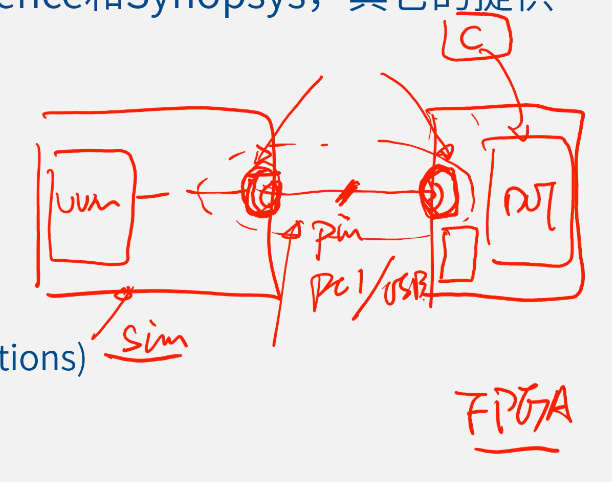 ence和Synopsys，其它的提供
C
UVM
DUT
Pin
PCI/USB
Sim
tions)
FPGA